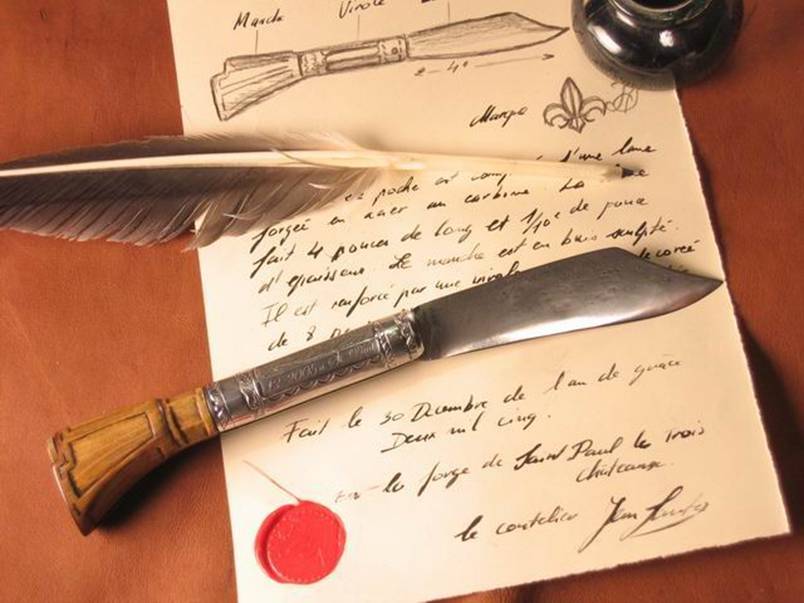 Manche
Virole
2 - 4"
Marque
d'une lame
poche est
forgée en acier au carbone La
fait 4 pouces de long et 1/10e de pouce
d'épaisseur Le manche est en buis sculpté.
Il est renforcé par une virole décorée
de 8
Fait le 30 Décembre de l'an de grâce
Deux mil cinq.
En la forge de Saint Paul les trois
châteaux.
le coutelier Jean